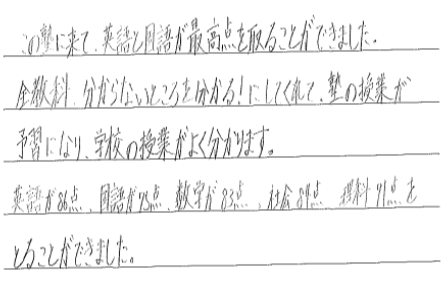 この塾に来て、英語と国語が最高点を取ることができました。
全教科、分からないところを分かる!にしてくれて、塾の授業が
予習になり、学校の授業がよく分かります。
英語が86点、国語が75点、数学が83点、社会89点 理科71点を
とることができました。